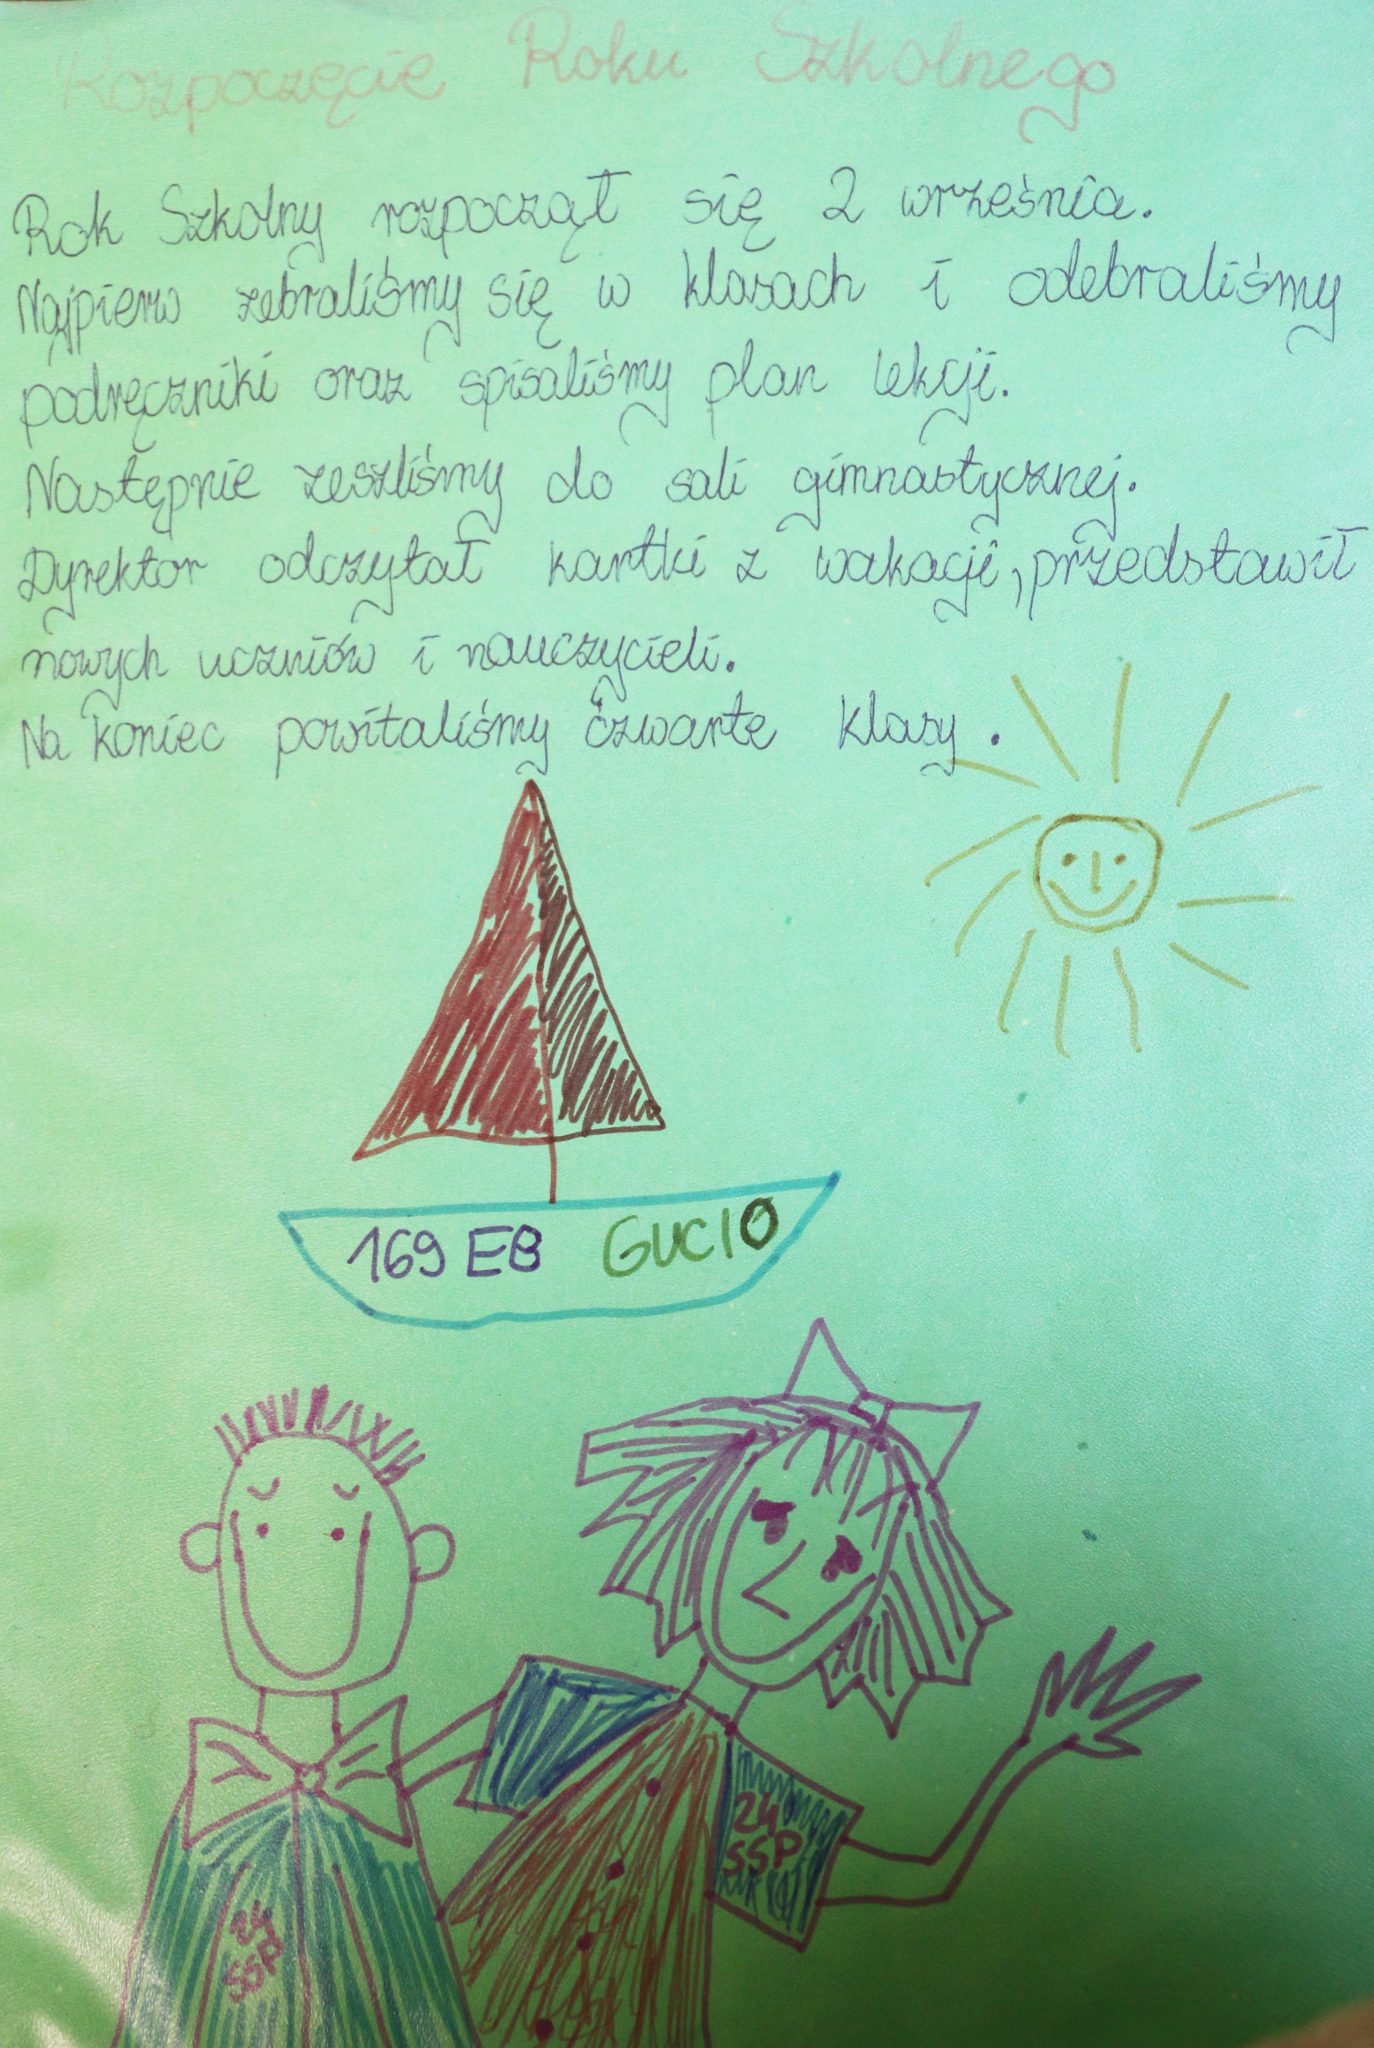 Rozpoczęcie Roku Szkolnego
Rok Szkolny rozpoczął się 2 września.
Najpierw zebraliśmy się w klasach i odebraliśmy
podręczniki oraz spisaliśmy plan lekcji.
Następnie zeszliśmy do sali gimnastycznej.
Dyrektor odczytał kartki z wakacji, przedstawił
nowych uczniów i nauczycieli.
Na koniec powitaliśmy czwarte klasy.
169 EB GUCIO
24
SSP
24
SSP